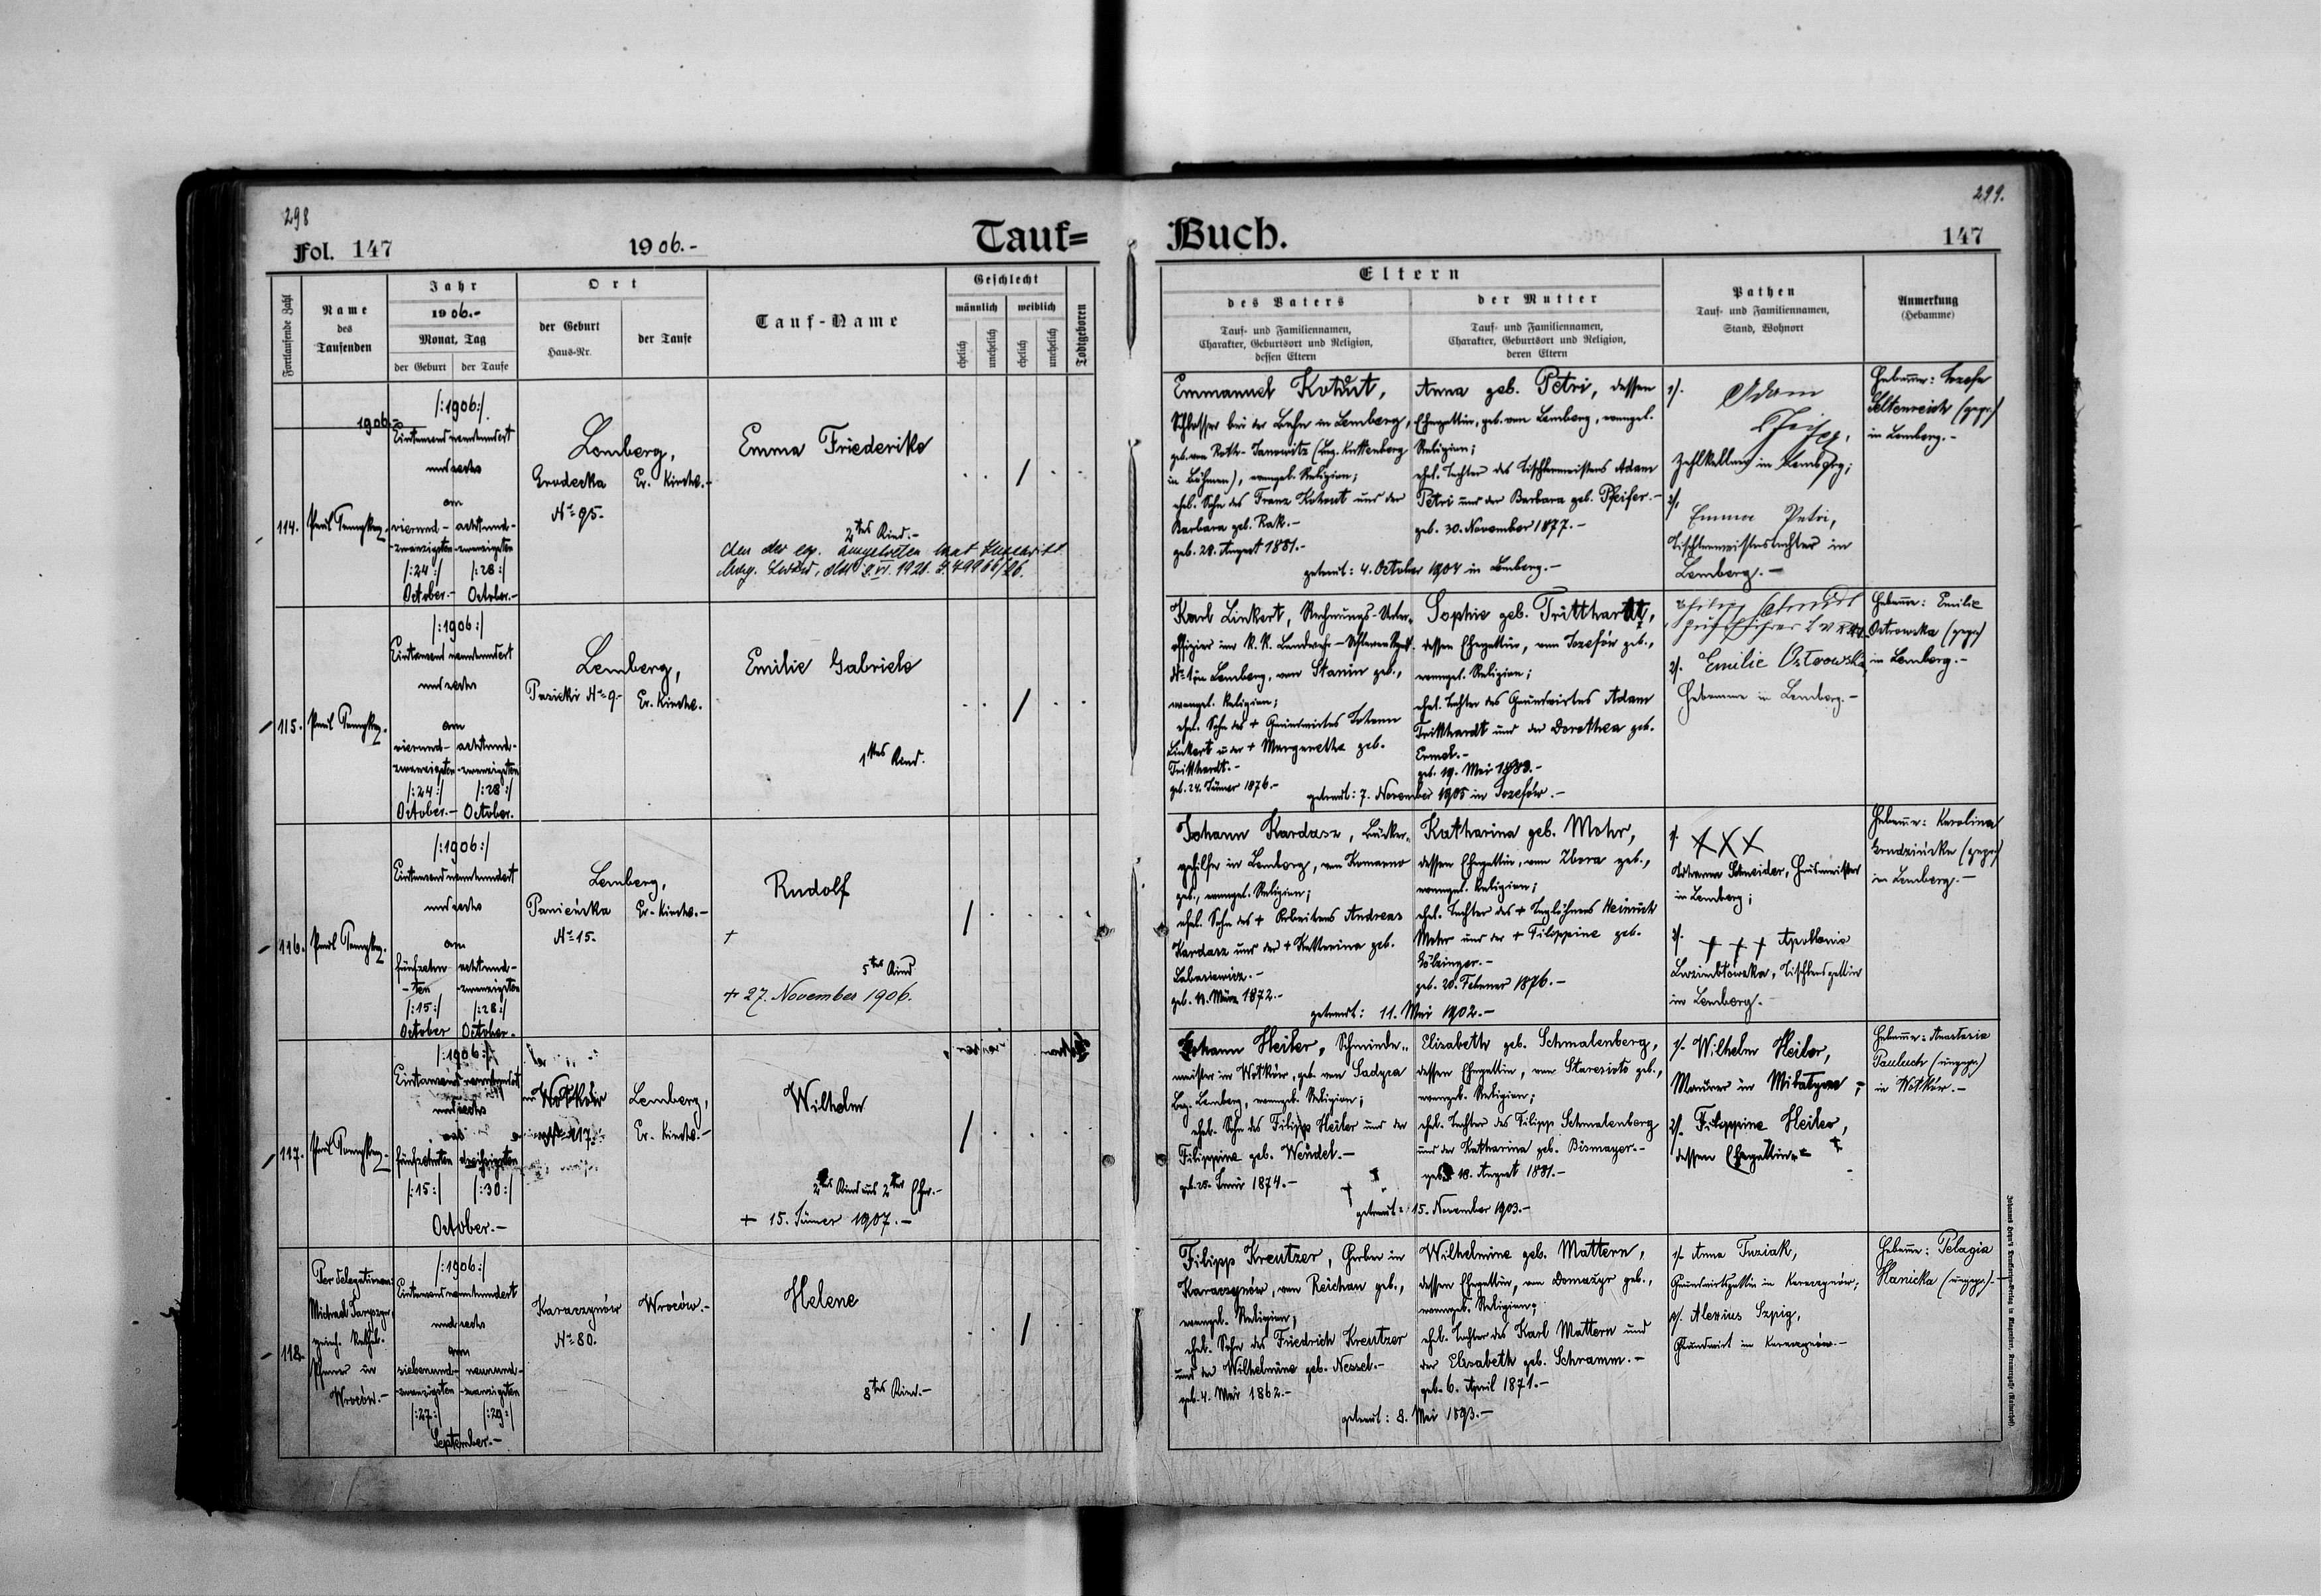 298
Fol. 147
1906.-
Tauf=
Fortlaufende Zahl
Name
des
Taufenden
Jahr
1906.-
Monat, Tag
der Geburt
der Taufe
Ort
der Geburt
Haus-Nr.
der Taufe
Tauf-Name
Geschlecht
männlich
weiblich
ehelich
unehelich
ehelich
unehelich
Todtgeboren
1906.-
114.
Paul
/:1906:/
Eintausend neunhundert
und sechs
am
vierund-
zwanzigsten
/:24:/
October.-
achtund-
zwanzigsten
/:28:/
October.-
Lemberg,
Grodecka
No 95.
Ev. Kirche.-
Emma Friederike
2tes Kind.-
115.
Paul
/:1906:/
Eintausend neunhundert
und sechs
am
vierund-
zwanzigsten
/:24:/
October.-
achtund-
zwanzigsten
/:28:/
October.
Lemberg,
No 9.-
Ev. Kirche.
Emilie Gabriele
1tes Kind.
116.
Paul
/:1906:/
Eintausend neunhundert
und sechs
am
fünfzehn-
ten
/:15:/
October
achtund-
zwanzigsten
/:28:/
October.-
Lemberg,
Panieńska
No 15.
Ev. Kirche.-
Rudolf
+
5tes Kind
+ 27. November 1906.
117.
Paul
/:1906:/
Eintausend neunhundert
und sechs
fünfzehnten
/:15:/
dreißigsten
/:30:/
October.-
Wołków
No 117.
Lemberg,
Ev. Kirche.-
Wilhelm
2tes Kind aus 2ter Ehe.-
+ 15. Jänner 1907.-
118.
Per delegationem:
Michael
Pfarrer in
Wroców.-
/:1906:/
Eintausend neunhundert
und sechs
am
siebenund-
zwanzigsten
/:27:/
neunund-
zwanzigsten
/:29:/
September.-
Karaczynów
No 80.
Wroców.-
Helene
8tes Kind.-
299.
Buch.
147
Eltern
des Vaters
Tauf- und Familiennamen,
Charakter, Geburtsort und Religion,
dessen Eltern
der Mutter
Tauf- und Familiennamen,
Charakter, Geburtsort und Religion,
deren Eltern
Pathen
Tauf- und Familiennamen,
Stand, Wohnort
Anmerkung
(Hebamme)
Emmanuel Kohout,
Schlosser bei der Bahn in Lemberg,
in Böhmen), evangel. Religion;
ehel. Sohn des Franz Kohout und der
Barbara geb. Rak.-
geb. 28. August 1881.-
Anna geb. Petri, dessen
Ehegattin, geb. von Lemberg, evangel.
Religion;
ehel. Tochter des Tischlermeisters Adam
Petri und der Barbara geb. Pfeifer.-
geb. 30. November 1877.-
getraut: 4. October 1904 in Lemberg.-
1/. Adam
Pfeifer,
Zahlkellner in Lemberg;
2/.
Emma Petri,
Tischlermeisterstochter in
Lemberg.-
Hebamme: Josefa
Seltenreich (gepr.)
in Lemberg.-
Karl Linkert, Rechnungs-Unter-
offizier im K. K. Landwehr-
No 1 in Lemberg, von Stanin geb.,
evangel. Religion;
ehel. Sohn des + Grundwirtes Johann
Linkert u. der + Margarethe geb.
Tritthardt.-
geb. 24. Jänner 1876.-
Sophie geb. Tritthardt,
dessen Ehegattin, von Josefów geb.,
evangel. Religion;
ehel. Tochter des Grundwirtes Adam
Tritthardt und der Dorothea geb.
Ermel.-
geb. 19. Mai 1883.-
getraut: 7. November 1905 in Josefów.-
2/. Emilie Ostrowska,
Hebamme in Lemberg.-
Hebamme: Emilie
Ostrowska (gepr.)
in Lemberg.-
Johann Kardasz, Bäcker-
gehilfe in Lemberg, von Komarno
geb., evangel. Religion;
ehel. Sohn des + Arbeiters Andreas
Kardasz und der + Katharina geb.
geb. 11. März 1872.-
Katharina geb. Mohr,
dessen Ehegattin, von Zbora geb.,
evangel. Religion;
ehel. Tochter des + Taglöhners Heinrich
Mohr und der + Filippine geb.
geb. 20. Februar 1876.-
getraut: 11. Mai 1902.-
1/. XXX
Johann Schneider, Hausmeister
in Lemberg;
2/. + + + Apollonia
Tischlersgattin
in Lemberg.-
Hebamme: Karolina
Grudzińska (gepr.)
in Lemberg.-
Johann Heiler, Schmiede-
meister in Wołków, geb. von Sadyra
Bez. Lemberg, evangel. Religion;
ehel. Sohn des Filipp Heiler und der
Filippine geb. Wendel.-
geb. 25. 1874.-
Elisabeth geb. Schmalenberg,
dessen Ehegattin, von Staresioło geb.,
evangel. Religion;
ehel. Tochter des Filipp Schmalenberg
und der Katharina geb. Bismayer.-
geb. 18. August 1881.-
getraut: 15. November 1903.-
1/. Wilhelm Heiler,
Maurer in
2/. Filippine Heiler,
dessen Ehegattin.-
Hebamme: Anastasia
Pauluch (ungepr.)
in Wołków.-
Filipp Kreutzer, Gerber in
Karaczynów, von Reichau geb.,
evangel. Religion;
ehel. Sohn des Friedrich Kreutzer
und der Wilhelmine geb. Nessel.-
geb. 4. Mai 1862.-
Wilhelmine geb. Mattern,
dessen Ehegattin, von Domażyr geb.,
evangel. Religion;
ehel. Tochter des Karl Mattern und
der Elisabeth geb. Schramm.-
geb. 6. April 1871.-
getraut: 8. Mai 1893.-
1/. Anna Tuziak,
Grundwirtsgattin in Karaczynów;
2/. Alexius Szpig,
Grundwirt in Karaczynów.-
Hebamme: Pelagia
Hanicka (ungepr.).-